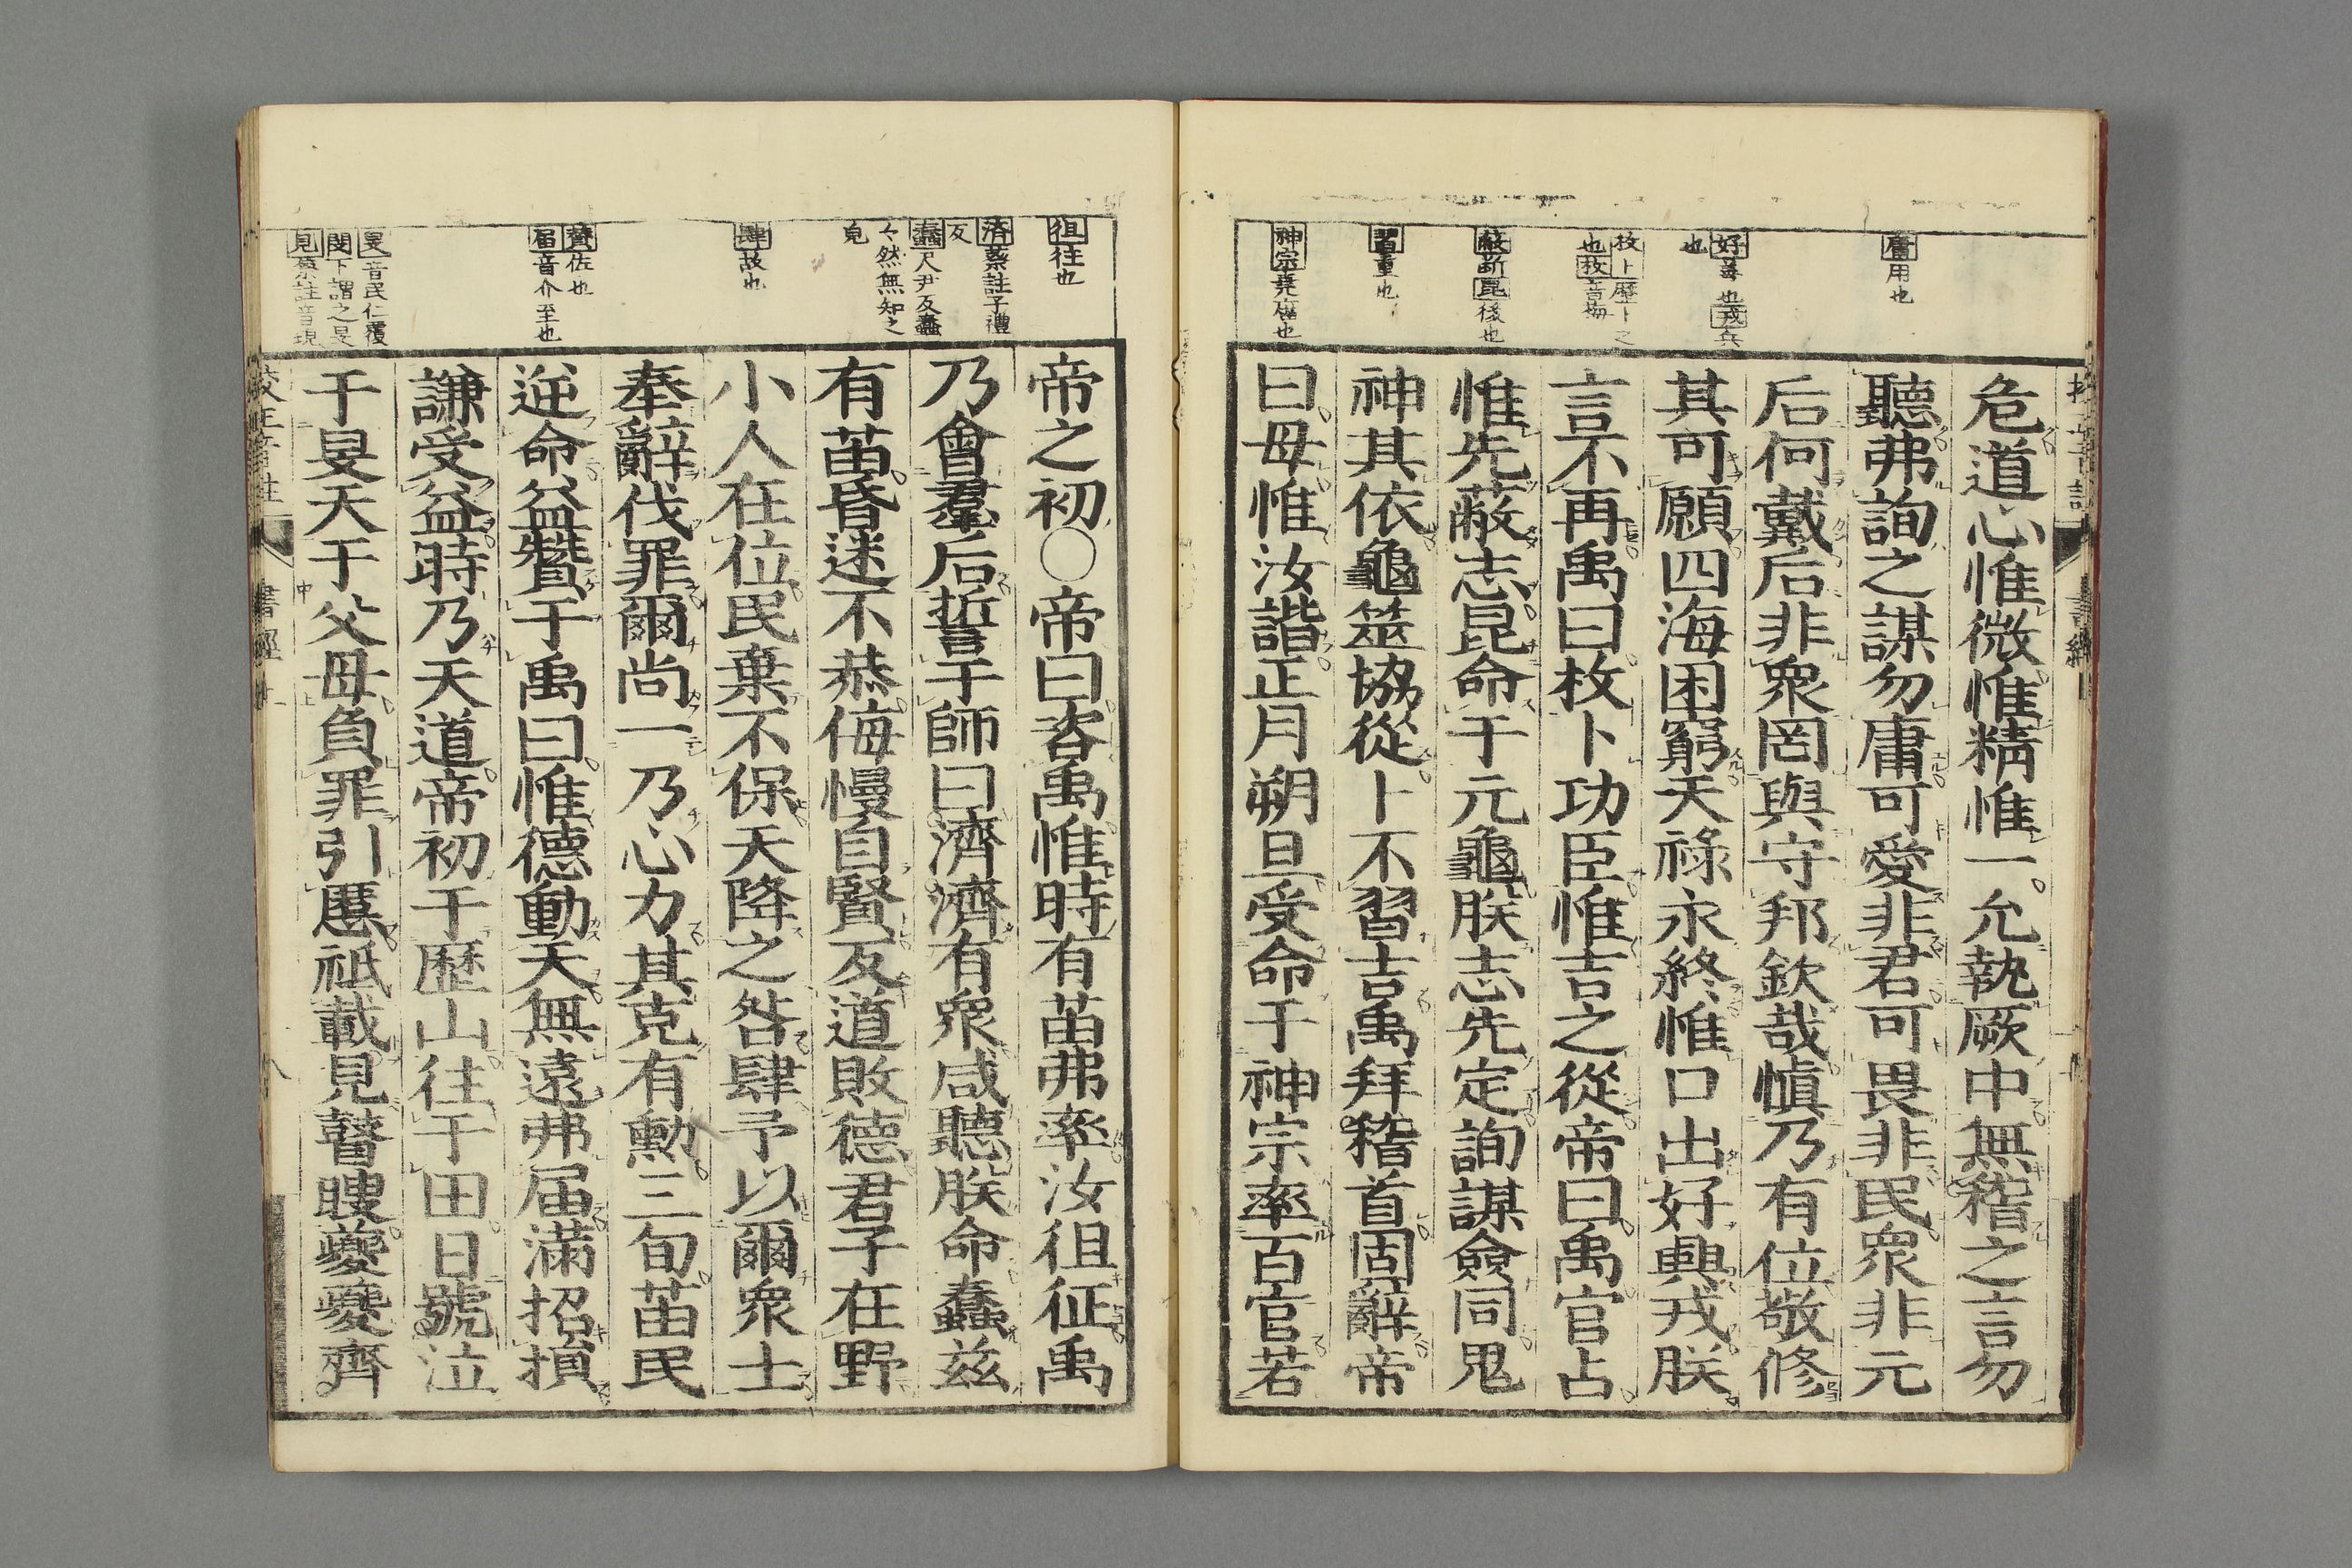 庸用也
好善也戎兵
也
枚卜歷卜之
也枚音梅
蔽斷昆後也
習重也
神宗堯廟也
危道心惟微惟精惟一允執厥中無稽之言勿
聽弗詢之謀勿庸可愛非君可畏非民衆非元
后何戴后非衆罔與守邦欽哉愼乃有位敬修
其可願四海困窮天祿永終惟口出好興戎朕
言不再禹曰枚卜功臣惟吉之從帝曰禹官占
惟先蔽志昆命于元龜朕志先定詢謀僉同鬼
神其依龜筮協從卜不習吉禹拜稽首固辭帝
曰毋惟汝諧正月朔旦受命于神宗率百官若
徂往也
濟蔡註子禮
反
蠢尺尹反蠢
々然無知之
皃
肆故也
贊佐也
届音介至也
旻音民仁覆
閔下謂之旻
見蔡註音現
帝之初○帝曰咨禹惟時有苗弗率汝徂征禹
乃會羣后誓于師曰濟濟有衆咸聽朕命蠢茲
有苗昏迷不恭侮慢自賢反道敗德君子在野
小人在位民棄不保天降之咎肆予以爾衆士
奉辭伐罪爾尚一乃心力其克有勳三旬苗民
逆命益贊于禹曰惟德動天無遠弗届滿招損
謙受益時乃天道帝初于歷山往于田日號泣
于旻天于父母負罪引慝祗載見瞽瞍夔夔齊
書經
八